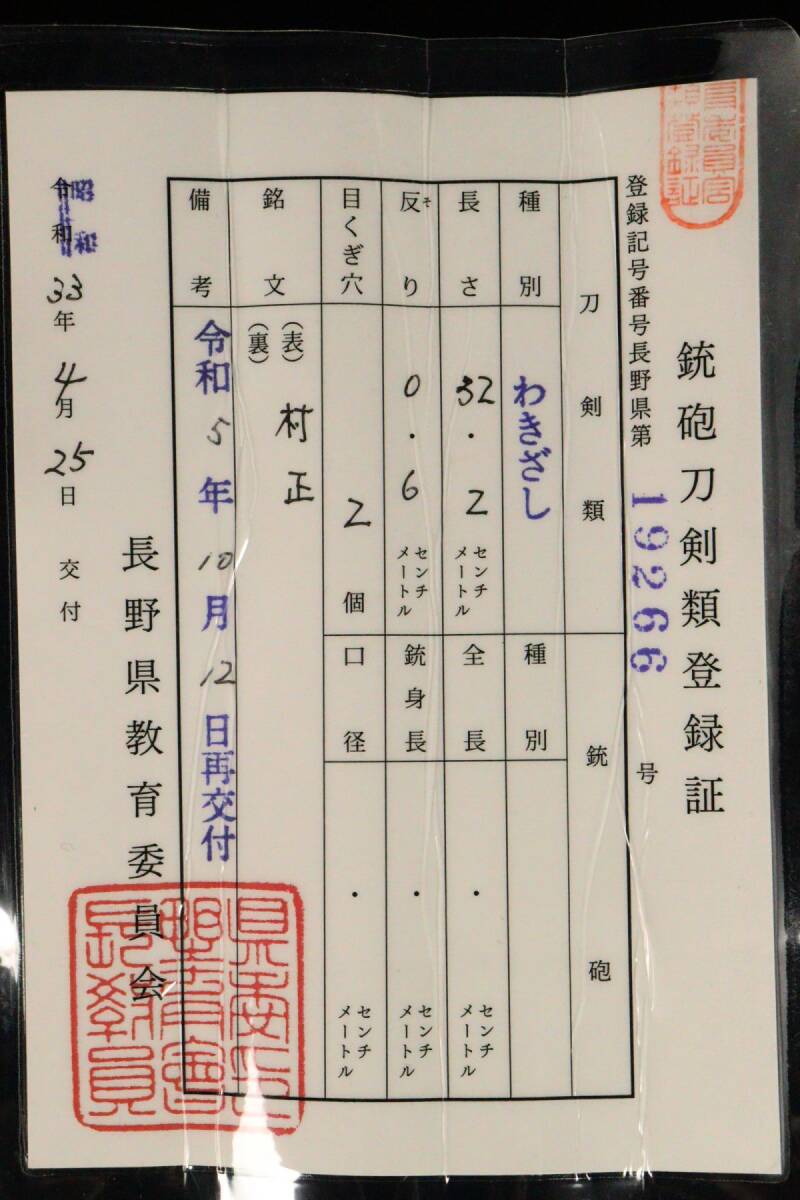 銃砲刀剣類登録証
登録記号番号長野県第 19266 号
刀剣類
種別 わきざし
長さ 32.2 センチメートル
反り 0.6 センチメートル
そ
目くぎ穴 2個
銘文 (表) 村正
(裏)
備考 令和5年10月12日再交付
銃砲
種別
全長 . センチメートル
銃身長 . センチメートル
口径 . センチメートル
長野県教育委員会
令和 昭和 33年4月25日 交付